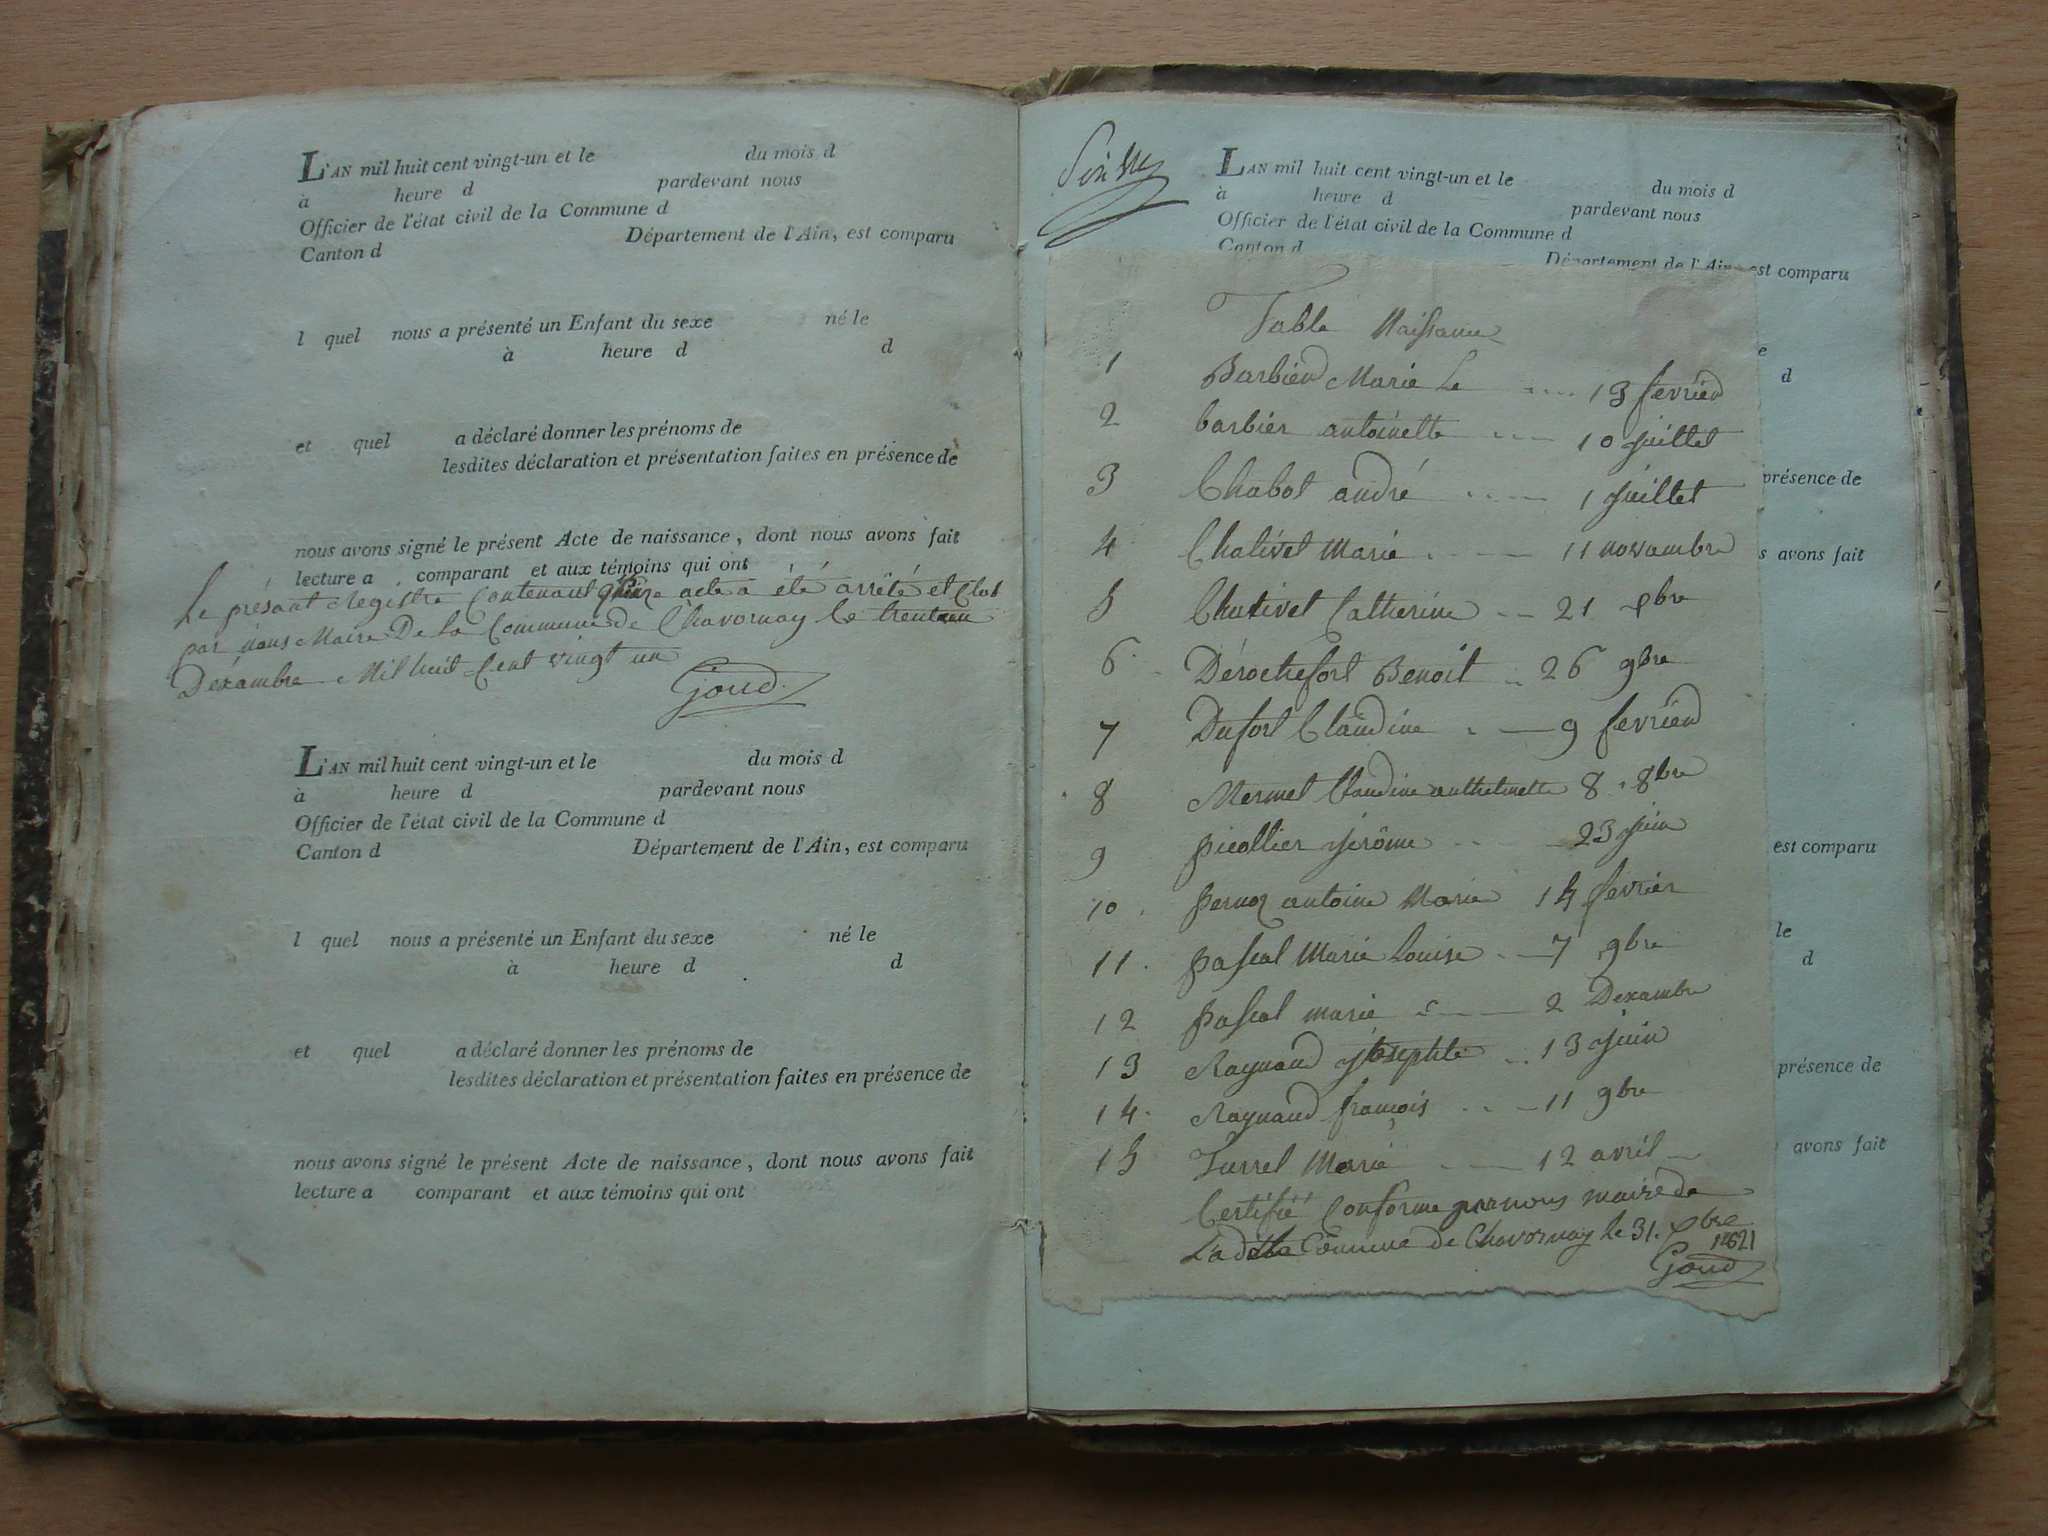 L'AN mil huit cent vingt-un et le du mois d
à heure d pardevant nous
Officier de l'état civil de la Commune d
Canton d Département de l'Ain, est comparu
l quel nous a présenté un Enfant du sexe né le
à heure d d
et quel a déclaré donner les prénoms de
lesdites déclaration et présentation faites en présence de
nous avons signé le présent Acte de naissance, dont nous avons fait
lecture a comparant et aux témoins qui ont
Le présant Registre Contenant acte a été arrêté et Clos
par nous Maire De la Commune de Chavornay le trentaun
Déxambre Mil huit Cent vingt un
Goud
L'AN mil huit cent vingt-un et le du mois d
à heure d pardevant nous
Officier de l'état civil de la Commune d
Canton d Département de l'Ain, est comparu
l quel nous a présenté un Enfant du sexe né le
à heure d d
et quel a déclaré donner les prénoms de
lesdites déclaration et présentation faites en présence de
nous avons signé le présent Acte de naissance, dont nous avons fait
lecture a comparant et aux témoins qui ont
LAN mil huit cent vingt-un et le du mois d
à heure d pardevant nous
Officier de l'état civil de la Commune d
Canton d Département de l'Ain, est comparu
Table Naissance
1 Barbier Marie Le 13 fevrier
2 barbier antoinette 10 juillet
3 Chabot andré 1 juillet
4 Chativet Marie 11 novambre
5 Chativet Catherine 21 xbre
6 Dérochefort Benoit 26 9bre
7 Dufort Claudine 9 fevrier
8 Mermet Claudine anthelmette 8 8bre
9 picollier jérôme 23 juin
10 pernoz antoine Marie 14 fevrier
11 pascal Marie Louise 7 9bre
12 pascal marie 2 Dexambre
13 Raynaud josephte 13 juin
14 Raynaud françois 11 9bre
15 Turrel Marie 12 avril
Certifié Conforme par nous maire de
La ditte Commune de Chavornay le 31. xbre
1821
Goud
d
présence de
s avons fait
est comparu
le
d
présence de
avons fait